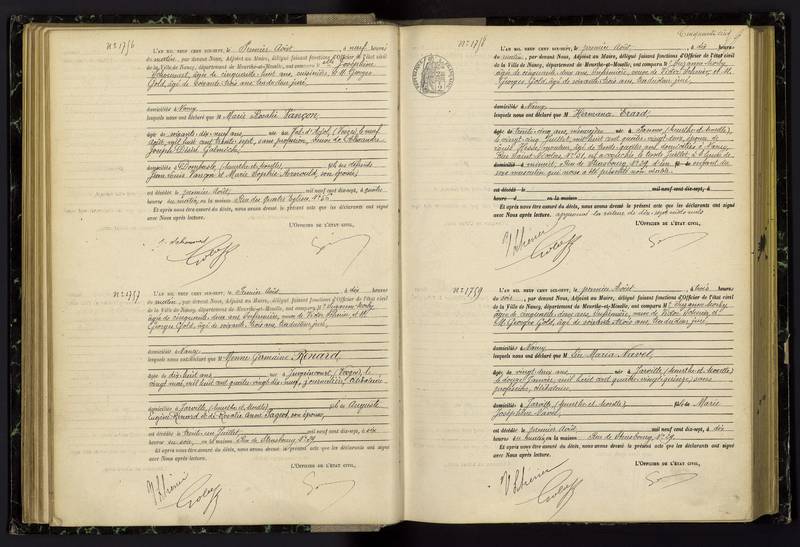 N° 1756
L'AN MIL NEUF CENT DIX-SEPT, le Premier Août, à neuf heures
du matin, par devant Nous, Adjoint au Maire, délégué faisant fonctions d'Officier de l'état civil
de la Ville de Nancy, département de Meurthe-et-Moselle, ont comparu M Joséphine
âgée de cinquante huit ans, cuisinière, et M. Georges
Gold, âgé de soixante trois ans, traducteur juré,
domiciliés à Nancy
lesquels nous ont déclaré que M Marie Rosalie Vançon,
âgée de soixante dix neuf ans, née au Val d'Ajol, (Vosges) le neuf
Août, mil huit cent trente sept, sans profession, veuve de Alexandre
Joseph Désiré
domiciliée à Dombasle (Meurthe et Moselle), fille des décédés
Jean Louis Vançon et Marie Sophie son épouse,
est décédée le premier Août, mil neuf cent dix-sept, à quatre
heures du matin, en la maison Rue des Quatre Eglises, N°
Et après nous être assuré du décès, nous avons dressé le présent acte que les déclarants ont signé
avec Nous après lecture.
L'OFFICIER DE L'ÉTAT CIVIL,
N° 1757
L'AN MIL NEUF CENT DIX-SEPT, le Premier Août, à dix heures
du matin, par devant Nous, Adjoint au Maire, délégué faisant fonctions d'Officier de l'état civil
de la Ville de Nancy, département de Meurthe-et-Moselle, ont comparu Me Suzanne
âgée de cinquante deux ans, infirmière, veuve de Victor et M.
Georges Gold, âgé de soixante trois ans, traducteur juré,
domiciliés à Nancy
lesquels nous ont déclaré que M Germaine Renard,
âgée de dix huit ans, née à (Vosges), le
vingt mai, mil huit cent quatre vingt dix neuf, journalière, célibataire
domiciliée à Jarville, (Meurthe et Moselle) fille de Auguste
Eugène Renard et de Rosalie Anne son épouse,
est décédée le trente un Juillet, mil neuf cent dix-sept, à dix
heures du soir, en la maison Rue de Strasbourg, N° 29
Et après nous être assuré du décès, nous avons dressé le présent acte que les déclarants ont signé
avec Nous après lecture.
L'OFFICIER DE L'ÉTAT CIVIL,
Cinquante cinq
N° 1758
L'AN MIL NEUF CENT DIX-SEPT, le premier Août, à dix heures
du matin, par devant Nous, Adjoint au Maire, délégué faisant fonctions d'Officier de l'état civil
de la Ville de Nancy, département de Meurthe-et-Moselle, ont comparu Me Suzanne
âgée de cinquante deux ans, infirmière, veuve de Victor et M.
Georges Gold, âgé de soixante trois ans, traducteur juré,
domiciliés à Nancy
lesquels nous ont déclaré que M Hermana Erard,
âgée de trente cinq ans, ménagère née à (Meurthe et Moselle),
le vingt cinq Juillet, mil huit cent quatre vingt deux, épouse de
domiciliés à Nancy,
Rue Saint Nicolas N° 51, est accouchée le trente Juillet, à
minuit, Rue de Strasbourg N° 29, d'un enfant du
sexe masculin qui nous a été présenté sans vie.
est décédé le mil neuf cent dix-sept, à
heures d en la maison
Et après nous être assuré du décès, nous avons dressé le présent acte que les déclarants ont signé
avec Nous après lecture. approuvé la rature de dix sept mots nuls
L'OFFICIER DE L'ÉTAT CIVIL,
N° 1759
L'AN MIL NEUF CENT DIX-SEPT, le premier Août, à trois heures
du soir, par devant Nous, Adjoint au Maire, délégué faisant fonctions d'Officier de l'état civil
de la Ville de Nancy, département de Meurthe-et-Moselle, ont comparu Me Suzanne
âgée de cinquante deux ans, infirmière, veuve de Victor et
M. Georges Gold, âgé de soixante trois ans, traducteur juré,
domiciliés à Nancy
lesquels nous ont déclaré que M Maria Navel,
âgée de vingt deux ans, née à Jarville (Meurthe et Moselle)
le douze Janvier, mil huit cent quatre vingt quinze, sans
profession, célibataire,
domiciliée à Jarville, (Meurthe et Moselle) fille de Marie
Joséphine Navel,
est décédée le premier Août, mil neuf cent dix-sept, à deux
heures du matin, en la maison Rue de Strasbourg, N° 29.
Et après nous être assuré du décès, nous avons dressé le présent acte que les déclarants ont signé
avec Nous après lecture.
L'OFFICIER DE L'ÉTAT CIVIL,